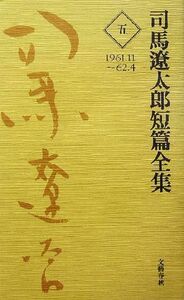 司馬遼太郎短篇全集
五
1961.11
〜62.4
司馬遼太郎
文藝春秋